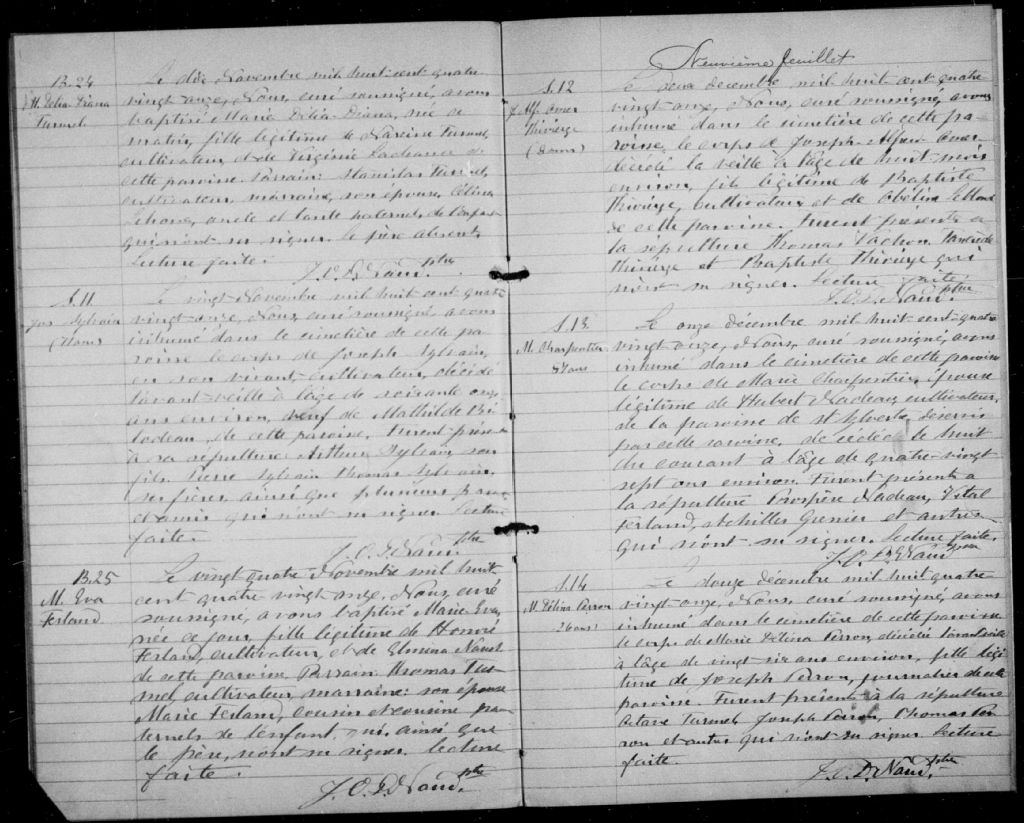 B.24
M. Délia Diana
Turmel
Le dix Novembre mil huit cent quatre
vingt onze, Nous, curé soussigné, avons
baptisé Marie Délia Diana, née ce
matin, fille légitime de Narcisse Turmel,
cultivateur, et de Virginie Nadeau de
cette paroisse. Parrain: Stanislas Turmel
cultivateur, marraine, son épouse, Célina
oncle et tante paternels de l'enfant
qui n'ont su signer. le père absent.
Lecture faite.
J. O. D. Naud, ptre
S.11
Jos Sylvain
Le vingt Novembre mil huit cent quatre
vingt onze, Nous, curé soussigné, avons
inhumé dans le cimetière de cette pa-
roisse le corps de Joseph Sylvain,
en son vivant, cultivateur, décédé
l'avant-veille à l'âge de soixante onze
ans environ, veuf de Mathilde Bi-
lodeau, de cette paroisse. Furent présents
à sa sépulture Arthur Sylvain, son
fils, Pierre Sylvain Thomas Sylvain,
ses frères, ainsi que plusieurs parents
et amis qui n'ont su signer. Lecture
faite.
J. O. D. Naud, ptre
B.25
M. Eva
Ferland
Le vingt quatre Novembre mil huit
cent quatre vingt onze, Nous, curé
soussigné, avons baptisé Marie Eva,
née ce jour, fille légitime de Honoré
Ferland, cultivateur, et de Elmina
de cette paroisse. Parrain Thomas Tur-
mel, cultivateur, marraine: son épouse
Marie Ferland, cousin et cousine pa-
ternels de l'enfant, qui, ainsi que
le père, n'ont su signer. Lecture
faite.
J. O. D. Naud, ptre
Neuvième feuillet
S.12
J. Alf. Omer
Thivierge
(8 mois)
Le deux décembre mil huit cent quatre
vingt onze, Nous, curé soussigné, avons
inhumé dans le cimetière de cette pa-
roisse, le corps de Joseph Alfred Omer
décédé la veille à l'âge de huit mois
environ, fils légitime de Baptiste
Thivierge, cultivateur et de
de cette paroisse. Furent présents à
la sépulture Thomas Vachon,
Thivierge et Baptiste Thivierge qui
n'ont su signer. Lecture faite.
J. O. D. Naud, ptre
S.13
M. Charpentier
87 ans
Le onze décembre mil huit cent quatre
vingt onze, Nous, curé soussigné, avons
inhumé dans le cimetière de cette paroisse
le corps de Marie Charpentier, épouse
légitime de Hubert Nadeau, cultivateur,
de la paroisse de St Sylvestre, desservie
par cette paroisse, décédée le huit
du courant à l'âge de quatre-vingt
sept ans environ. Furent présents à
la sépulture Prospère Nadeau, Vital
Ferland, Achilles Grenier et autres
qui n'ont su signer. Lecture faite.
J. O. D. Naud, ptre
S.14
M. Délina Perron
26 ans
Le douze décembre mil huit quatre-
vingt onze, Nous, curé soussigné, avons
inhumé dans le cimetière de cette paroisse
le corps de Marie Délina Perron, décédée l'avant veille
à l'âge de vingt six ans environ, fille légi-
time de Joseph Perron, journalier de cette
paroisse. Furent présents à la sépulture
Octave Turmel Joseph Perron, Thomas Per-
ron et autres qui n'ont su signer. Lecture
faite.
J. O. D. Naud, ptre